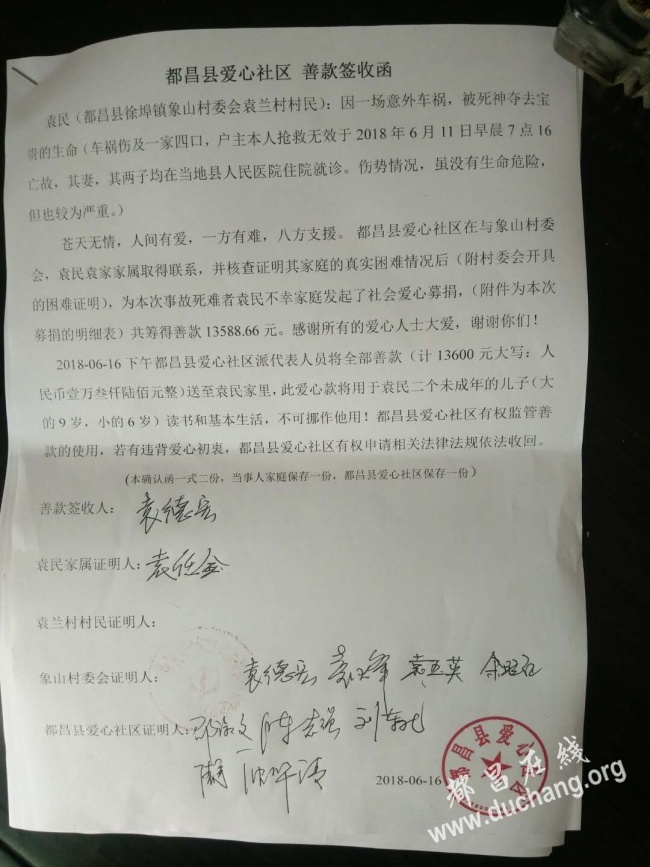 都昌县爱心社区 善款签收函
袁民（都昌县徐埠镇象山村委会袁兰村村民）：因一场意外车祸，被死神夺去宝
贵的生命（车祸伤及一家四口，户主本人抢救无效于 2018 年 6 月 11 日早晨 7 点 16
亡故，其妻，其两子均在当地县人民医院住院就诊。伤势情况，虽没有生命危险，
但也较为严重。）
苍天无情，人间有爱，一方有难，八方支援。 都昌县爱心社区在与象山村委
会，袁民袁家家属取得联系，并核查证明其家庭的真实困难情况后（附村委会开具
的困难证明），为本次事故死难者袁民不幸家庭发起了社会爱心募捐，（附件为本次
募捐的明细表）共筹得善款 13588.66 元。感谢所有的爱心人士大爱，谢谢你们！
2018-06-16 下午都昌县爱心社区派代表人员将全部善款（计 13600 元大写：人
民币壹万叁仟陆佰元整）送至袁民家里，此爱心款将用于袁民二个未成年的儿子（大
的 9 岁，小的 6 岁）读书和基本生活，不可挪作他用！都昌县爱心社区有权监管善
款的使用，若有违背爱心初衷，都昌县爱心社区有权申请相关法律法规依法收回。
（本确认函一式二份，当事人家庭保存一份，都昌县爱心社区保存一份）
善款签收人： 袁德宏
袁民家属证明人：袁任金
袁兰村村民证明人：
象山村委会证明人： 袁德宏 袁五英
都昌县爱心社区证明人：
2018-06-16
都昌县爱心
都昌在线
www.duchang.org